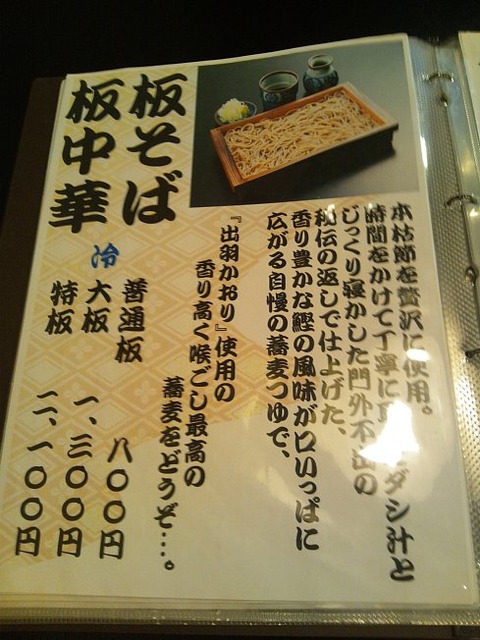 板そば
板中華
冷
本枯節を贅沢に使用。
時間をかけて丁寧に ダシ汁と
じっくり寝かした門外不出の
秘伝の返しで仕上げた、
香り豊かな鰹の風味が口いっぱに
広がる自慢の蕎麦つゆで、
『出羽かおり』使用の
香り高く喉ごし最高の
蕎麦をどうぞ…。
普通板 八〇〇円
大板 一、三〇〇円
特板 二、一〇〇円